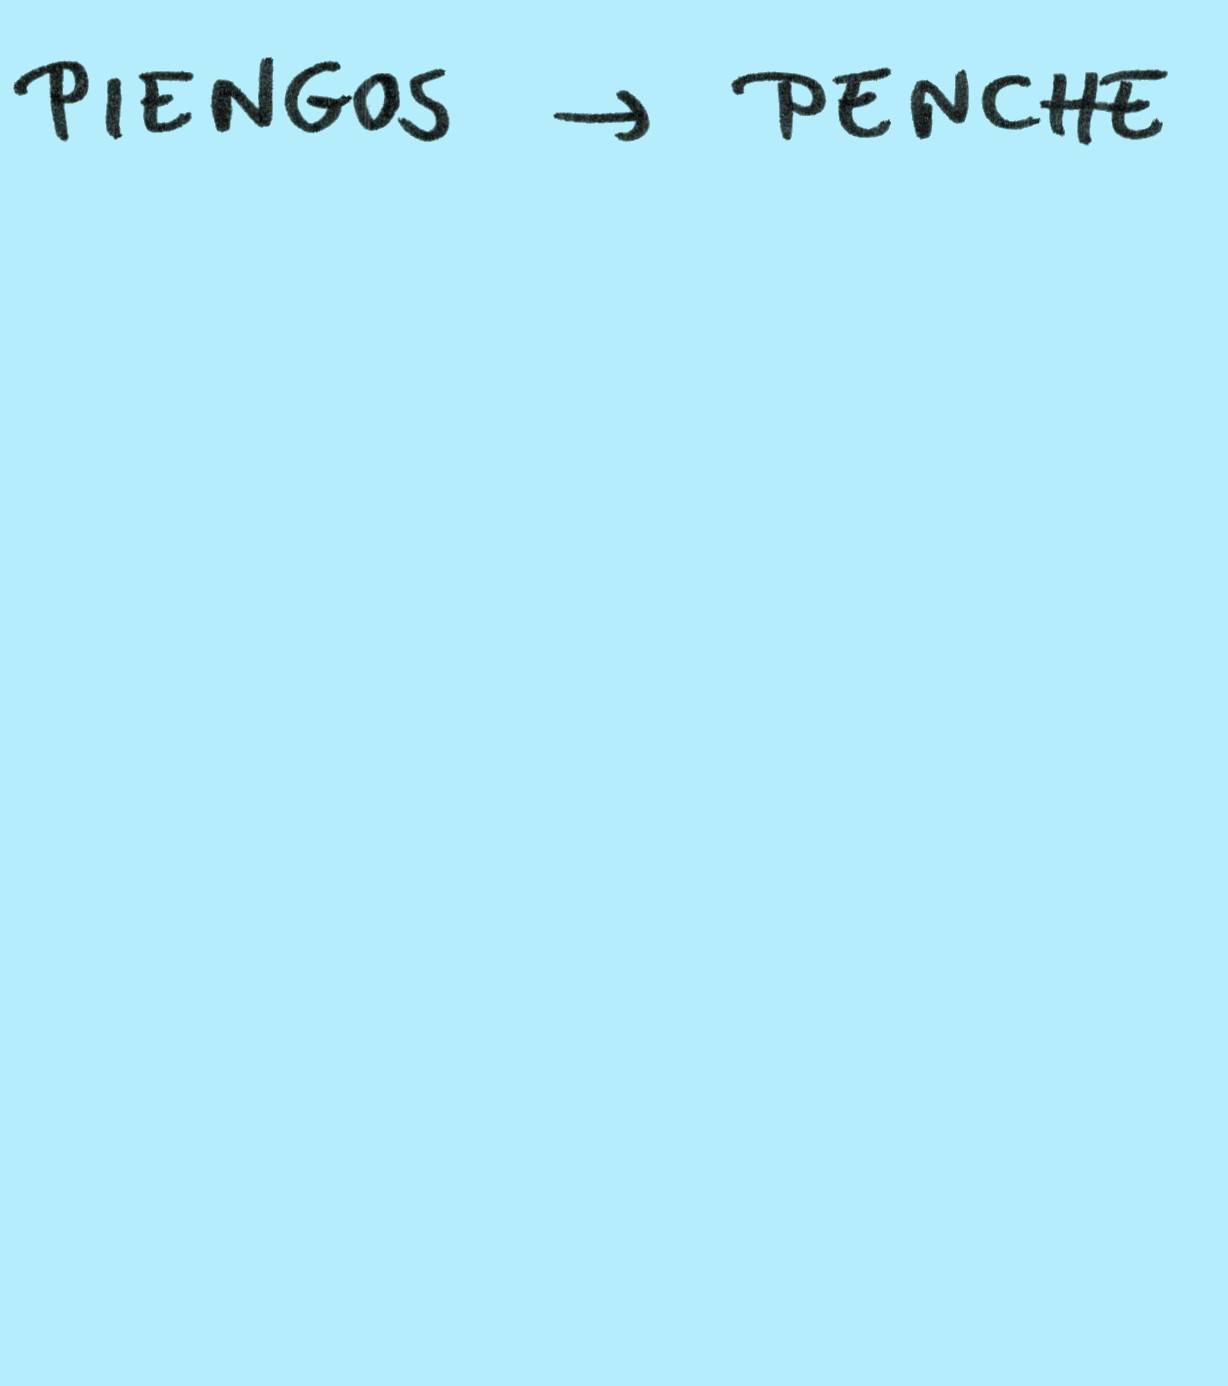 PIENGOS → PENCHE